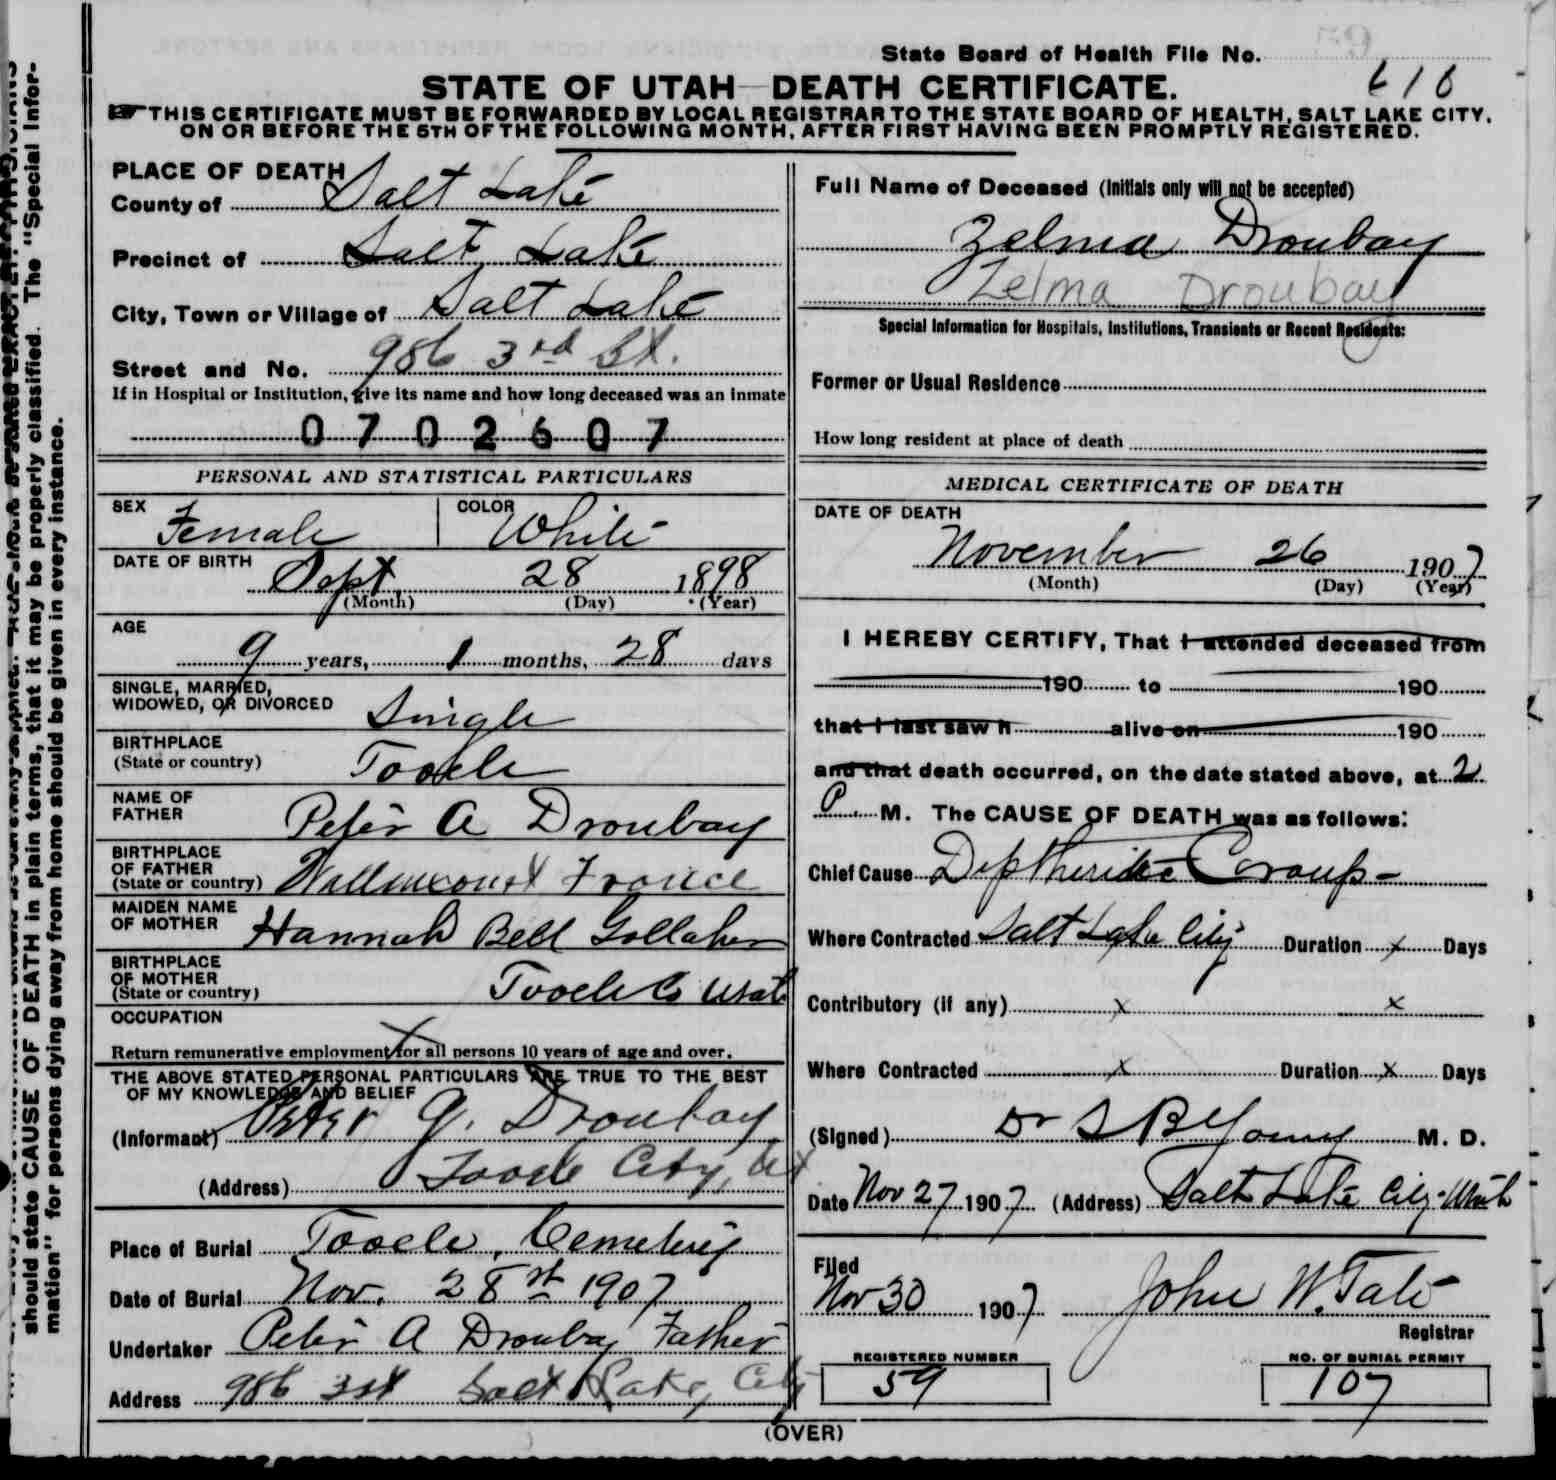 State Board of Health File No.
616
STATE OF UTAH—DEATH CERTIFICATE.
THIS CERTIFICATE MUST BE FORWARDED BY LOCAL REGISTRAR TO THE STATE BOARD OF HEALTH, SALT LAKE CITY,
ON OR BEFORE THE 5TH OF THE FOLLOWING MONTH, AFTER FIRST HAVING BEEN PROMPTLY REGISTERED.
PLACE OF DEATH
County of Salt Lake
Precinct of Salt Lake
City, Town or Village of Salt Lake
Street and No. 986 3rd St.
If in Hospital or Institution, give its name and how long deceased was an inmate
0702607
PERSONAL AND STATISTICAL PARTICULARS
SEX Female COLOR White
DATE OF BIRTH Sept 28 1898
(Month) (Day) (Year)
AGE
9 years, 1 months, 28 days
SINGLE, MARRIED,
WIDOWED, OR DIVORCED Single
BIRTHPLACE
(State or country) Tooele
NAME OF
FATHER Peter A Droubay
BIRTHPLACE
OF FATHER
(State or country) France
MAIDEN NAME
OF MOTHER Hannah Bell Gollaher
BIRTHPLACE
OF MOTHER
(State or country) Tooele Co Utah
OCCUPATION X
Return remunerative employment for all persons 10 years of age and over.
THE ABOVE STATED PERSONAL PARTICULARS ARE TRUE TO THE BEST
OF MY KNOWLEDGE AND BELIEF
(Informant) Peter A. Droubay
(Address) Tooele City, Ut
Place of Burial Tooele, Cemetery
Date of Burial Nov. 28st 1907
Undertaker Peter A Droubay Father
Address 986 3 st Salt Lake, City
Full Name of Deceased (Initials only will not be accepted)
Zelma Droubay
Zelma Droubay
Special Information for Hospitals, Institutions, Transients or Recent Residents:
Former or Usual Residence
How long resident at place of death
MEDICAL CERTIFICATE OF DEATH
DATE OF DEATH
November 26 1907
(Month) (Day) (Year)
I HEREBY CERTIFY, That I attended deceased from
190 to 190
that I last saw h alive on 190
and that death occurred, on the date stated above, at 2
P. M. The CAUSE OF DEATH was as follows:
Chief Cause Diptheritic Croup-
Where Contracted Salt Lake City Duration x Days
Contributory (if any) x x
Where Contracted x Duration x Days
(Signed) Dr S B Young M. D.
Date Nov 27 1907 (Address) Salt Lake City-Utah
Filed
Nov 30 1907 John W. Tate
Registrar
REGISTERED NUMBER
59
NO. OF BURIAL PERMIT
107
(OVER)
should state CAUSE OF DEATH in plain terms, that it may be properly classified. The "Special Infor-
mation" for persons dying away from home should be given in every instance.